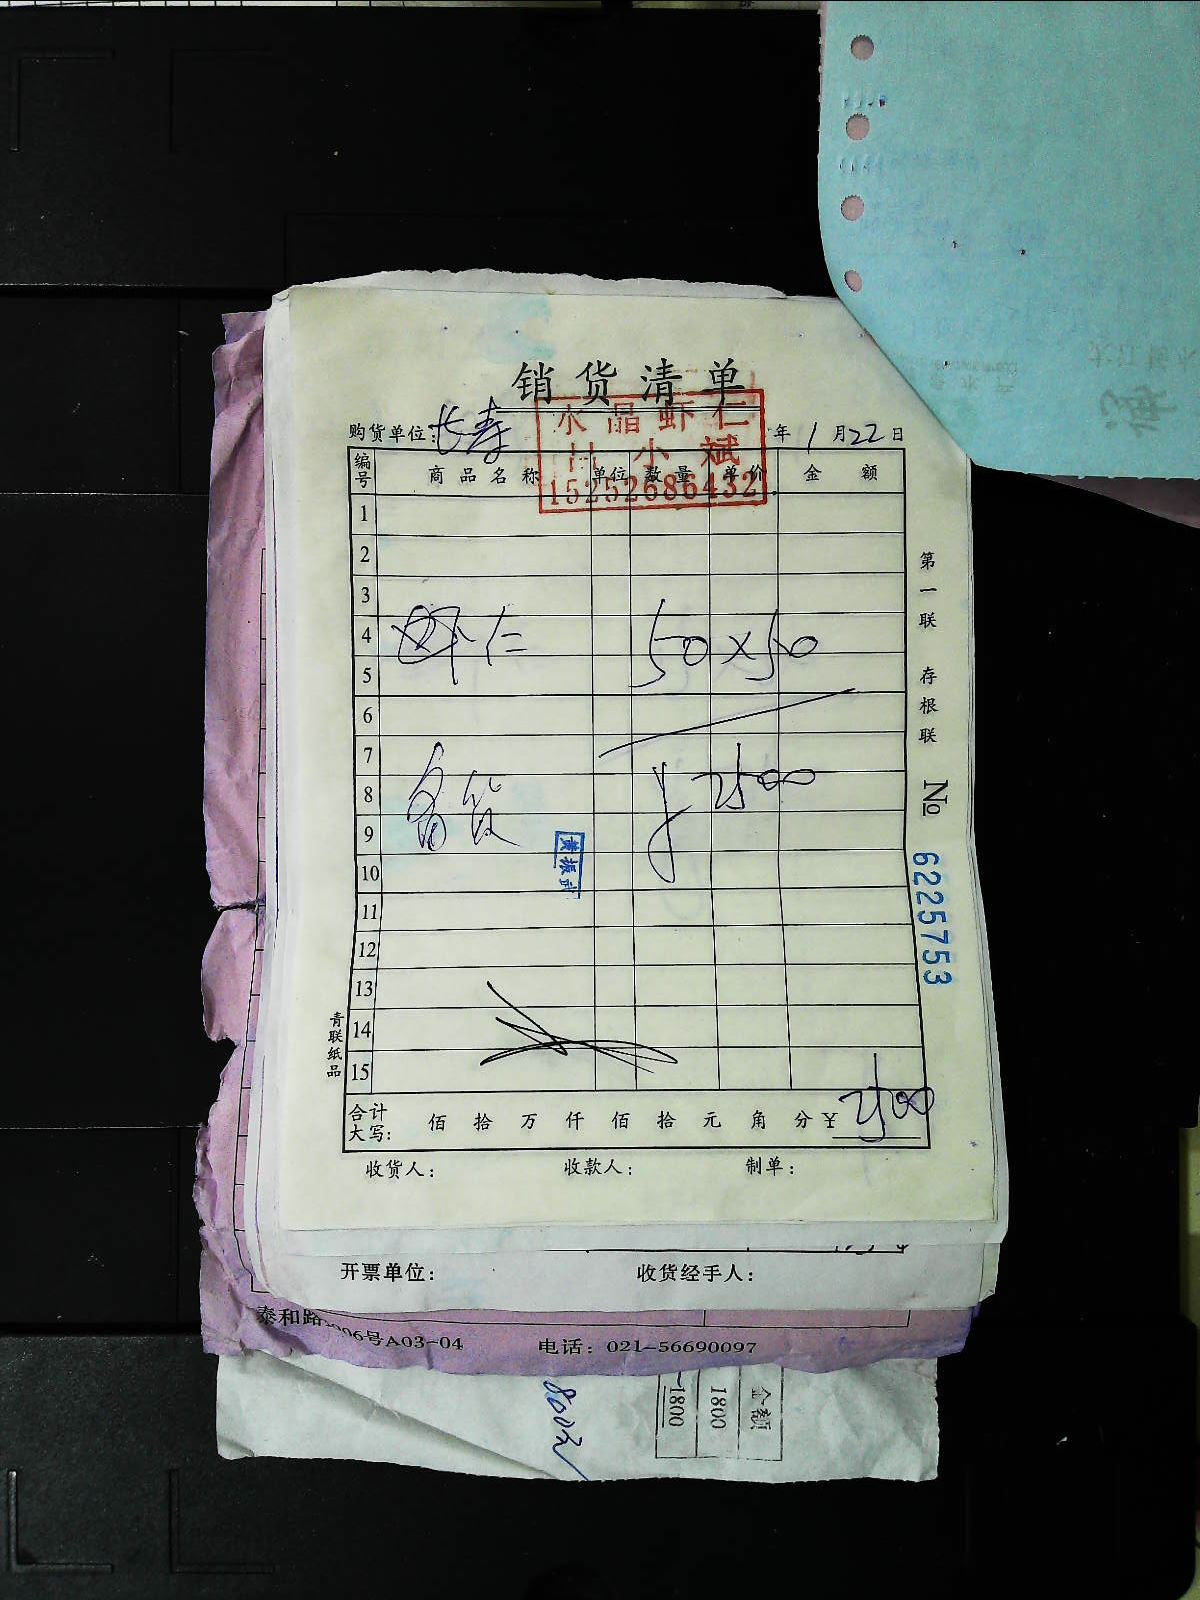 销货清单
购货单位: 长寿 年 1 月 22 日
水晶虾仁
小斌
15252686432
编号 商品名称 单位 数量 单价 金额
1
2
3
4 虾仁 50×50
5
6
7
8 备货 ¥2500
9
黄振武
10
11
12
13
14
15
合计大写: 佰 拾 万 仟 佰 拾 元 角 分 ¥ 2500
收货人: 收款人: 制单:
第一联 存根联
№ 6225753
青联纸品
开票单位: 收货经手人:
泰和路 006号A03-04 电话: 021-56690097
金额
1800
1800
800元